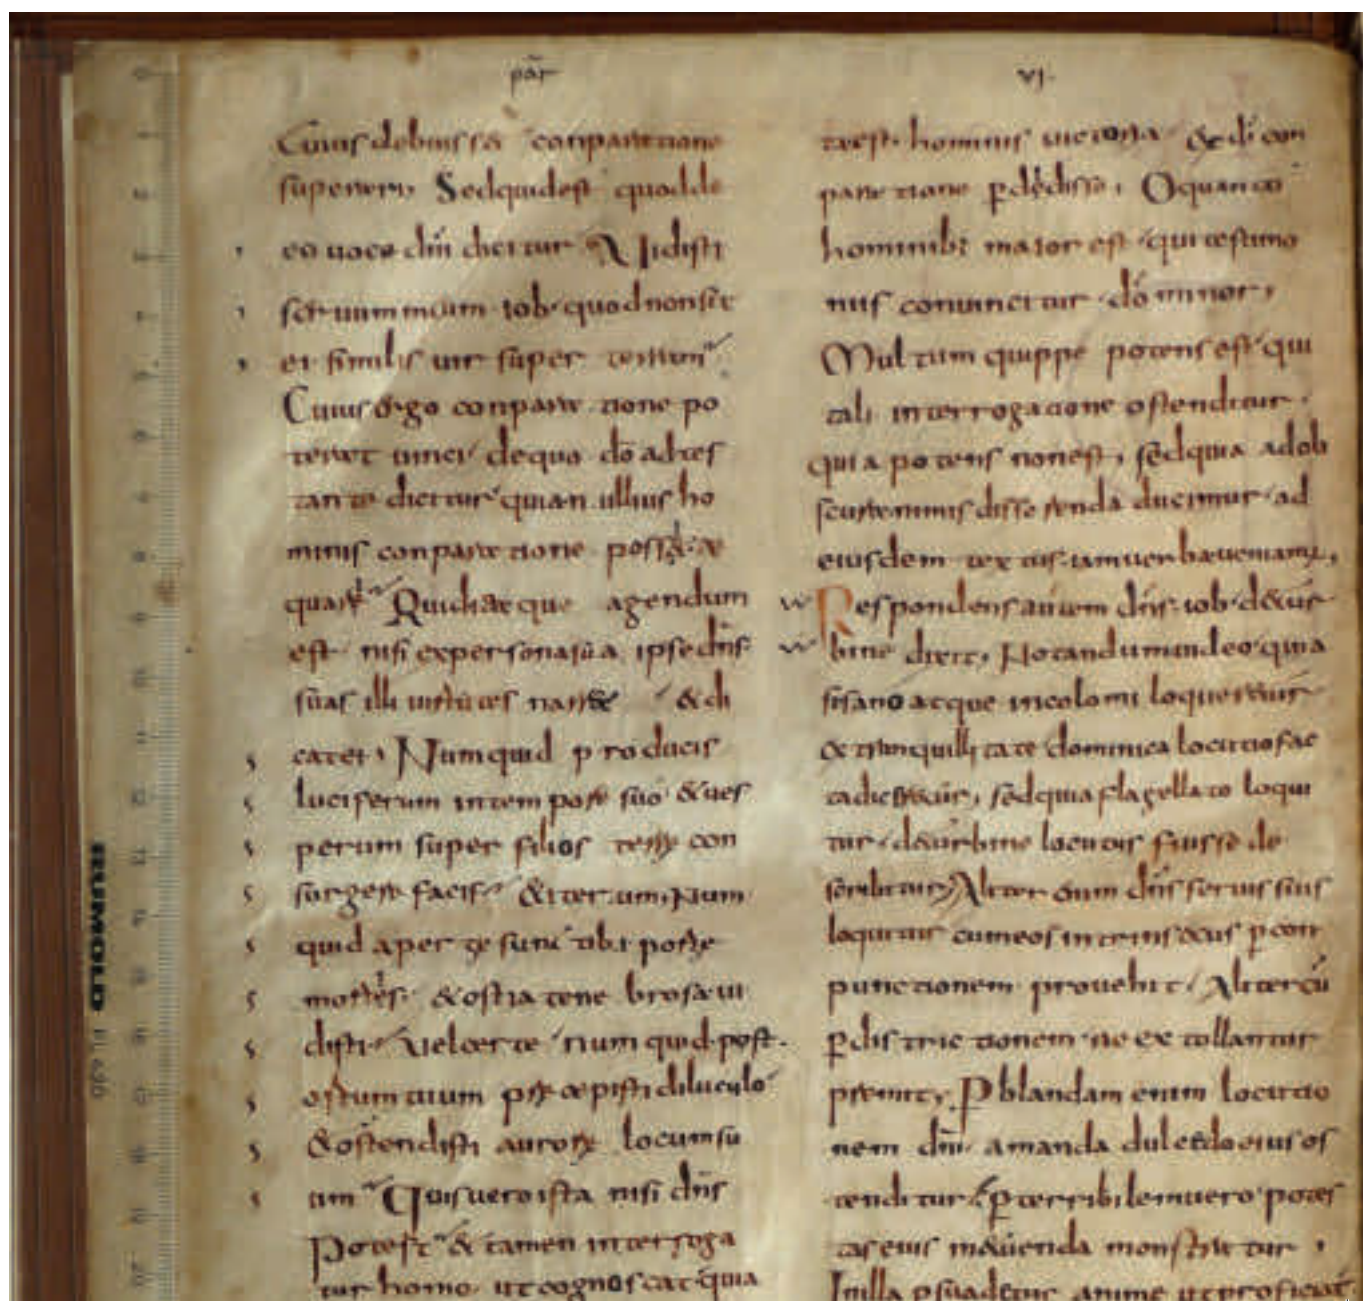 par
vi.
Cuius debuisset conparatione
superari, Sed quid est quod de
eo uoce dni dicitur Uidisti
seruum meum iob quod non sit
ei similis uir super terram
Cuius ergo conparatione po
terat uinci de quo do adtes
tante dicitur quia nullius ho
minis conparatione posset ae
quari Quid itaque agendum
est nisi ex persona sua ipse dns
suas illi uirtutes narret & di
cat ei, Numquid producis
luciferum in tempore suo & ues
perum super filios terrę con
sorgere facis & iterum, Num
quid apertę sunt tibi portę
mortis & ostia tenebrosa ui
disti, uel certe num quid post
ortum tuum pręcepisti diluculo
& ostendisti aurorę locum su
um Quis uero ista nisi dns
Potest & tamen interroga
tur homo ut cognoscat quia
ta est hominis uictoria & di con
paratione perdedisse, O quanto
hominibus maior est qui testimo
niis conuincitur do minor,
Multum quippe potens est qui
tali interrogatione ostenditur
quia potens non est, sed quia ad ob
scura nimis disserenda ducimur ad
eiusdem textus iam uerba ueniamus,
Respondens autem dns iob de tur
bine dixit, Notandum uideo quia
si sano atque incolomi loqueretur
& tranquillitate dominica locutio fac
ta diceretur, sed quia flagellato loqui
tur de turbine locutus fuisse de
scribitur, Aliter enim dns seruis suis
loquitur cum eos intrinsecus per con
punctionem prouehit, Aliter cu
per districtionem ne extollantur
premit, Per blandam enim locutio
nem dni amanda dulcedo eius os
tenditur Per terribilem uero potes
tas eius metuenda monstratur,
In illa persuadetur anime ut proficiat
RUMOLD